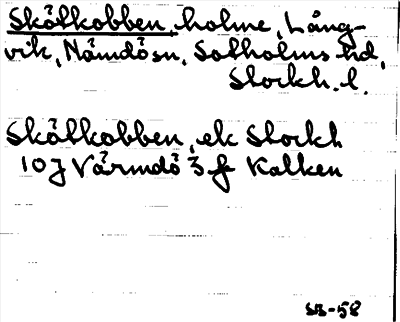 Skötkobben, holme, Lång-
vik, Nämdö sn, Sotholms hd,
Stockh. l.
Skötkobben, ek Stockh
10J Värmdö 3 f Kalken
SB-58